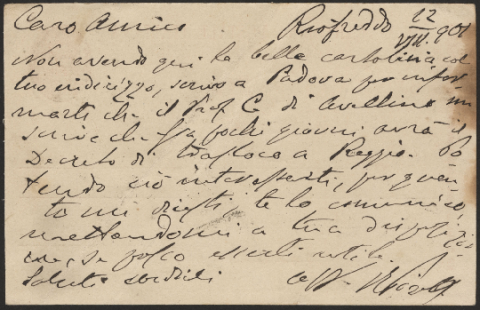 Caro Amico Riofreddo 22 VIII 901
Non avendo qui la bella cartolina col
tuo indirizzo, scrivo a Padova per infor-
marti che il Prof C. di Avellino mi
scrive che fra pochi giorni avrà il
Decreto di trasloco a Reggio. Po-
tendo ciò interessarti, per quan-
to mi dicesti te lo comunico,
mettendomi a tua disposizio-
ne, se posso esserti utile.
Saluti cordiali